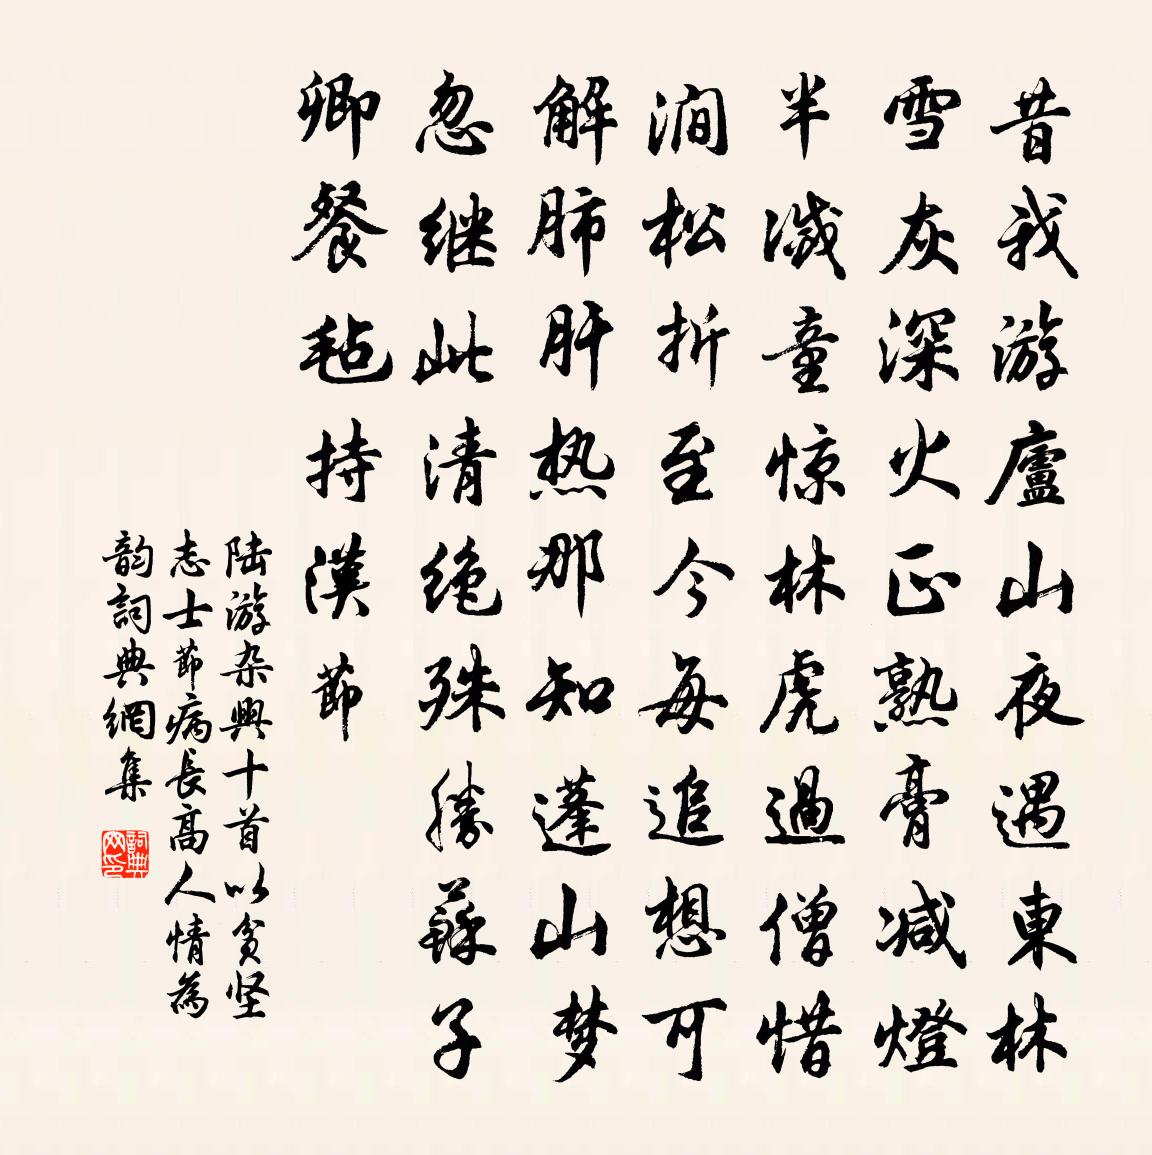 昔我游廬山夜遇東林
雪灰深火正熟膏减燈
半滅童惊林虎過僧惜
澗松折至今每追想可
解肺肝热那知蓬山梦
忽继此清绝殊勝蘇子
卿餐毡持漢節
陆游杂興十首以貧坚
志士節病長高人情為
韵詞典網集
詞典
网印